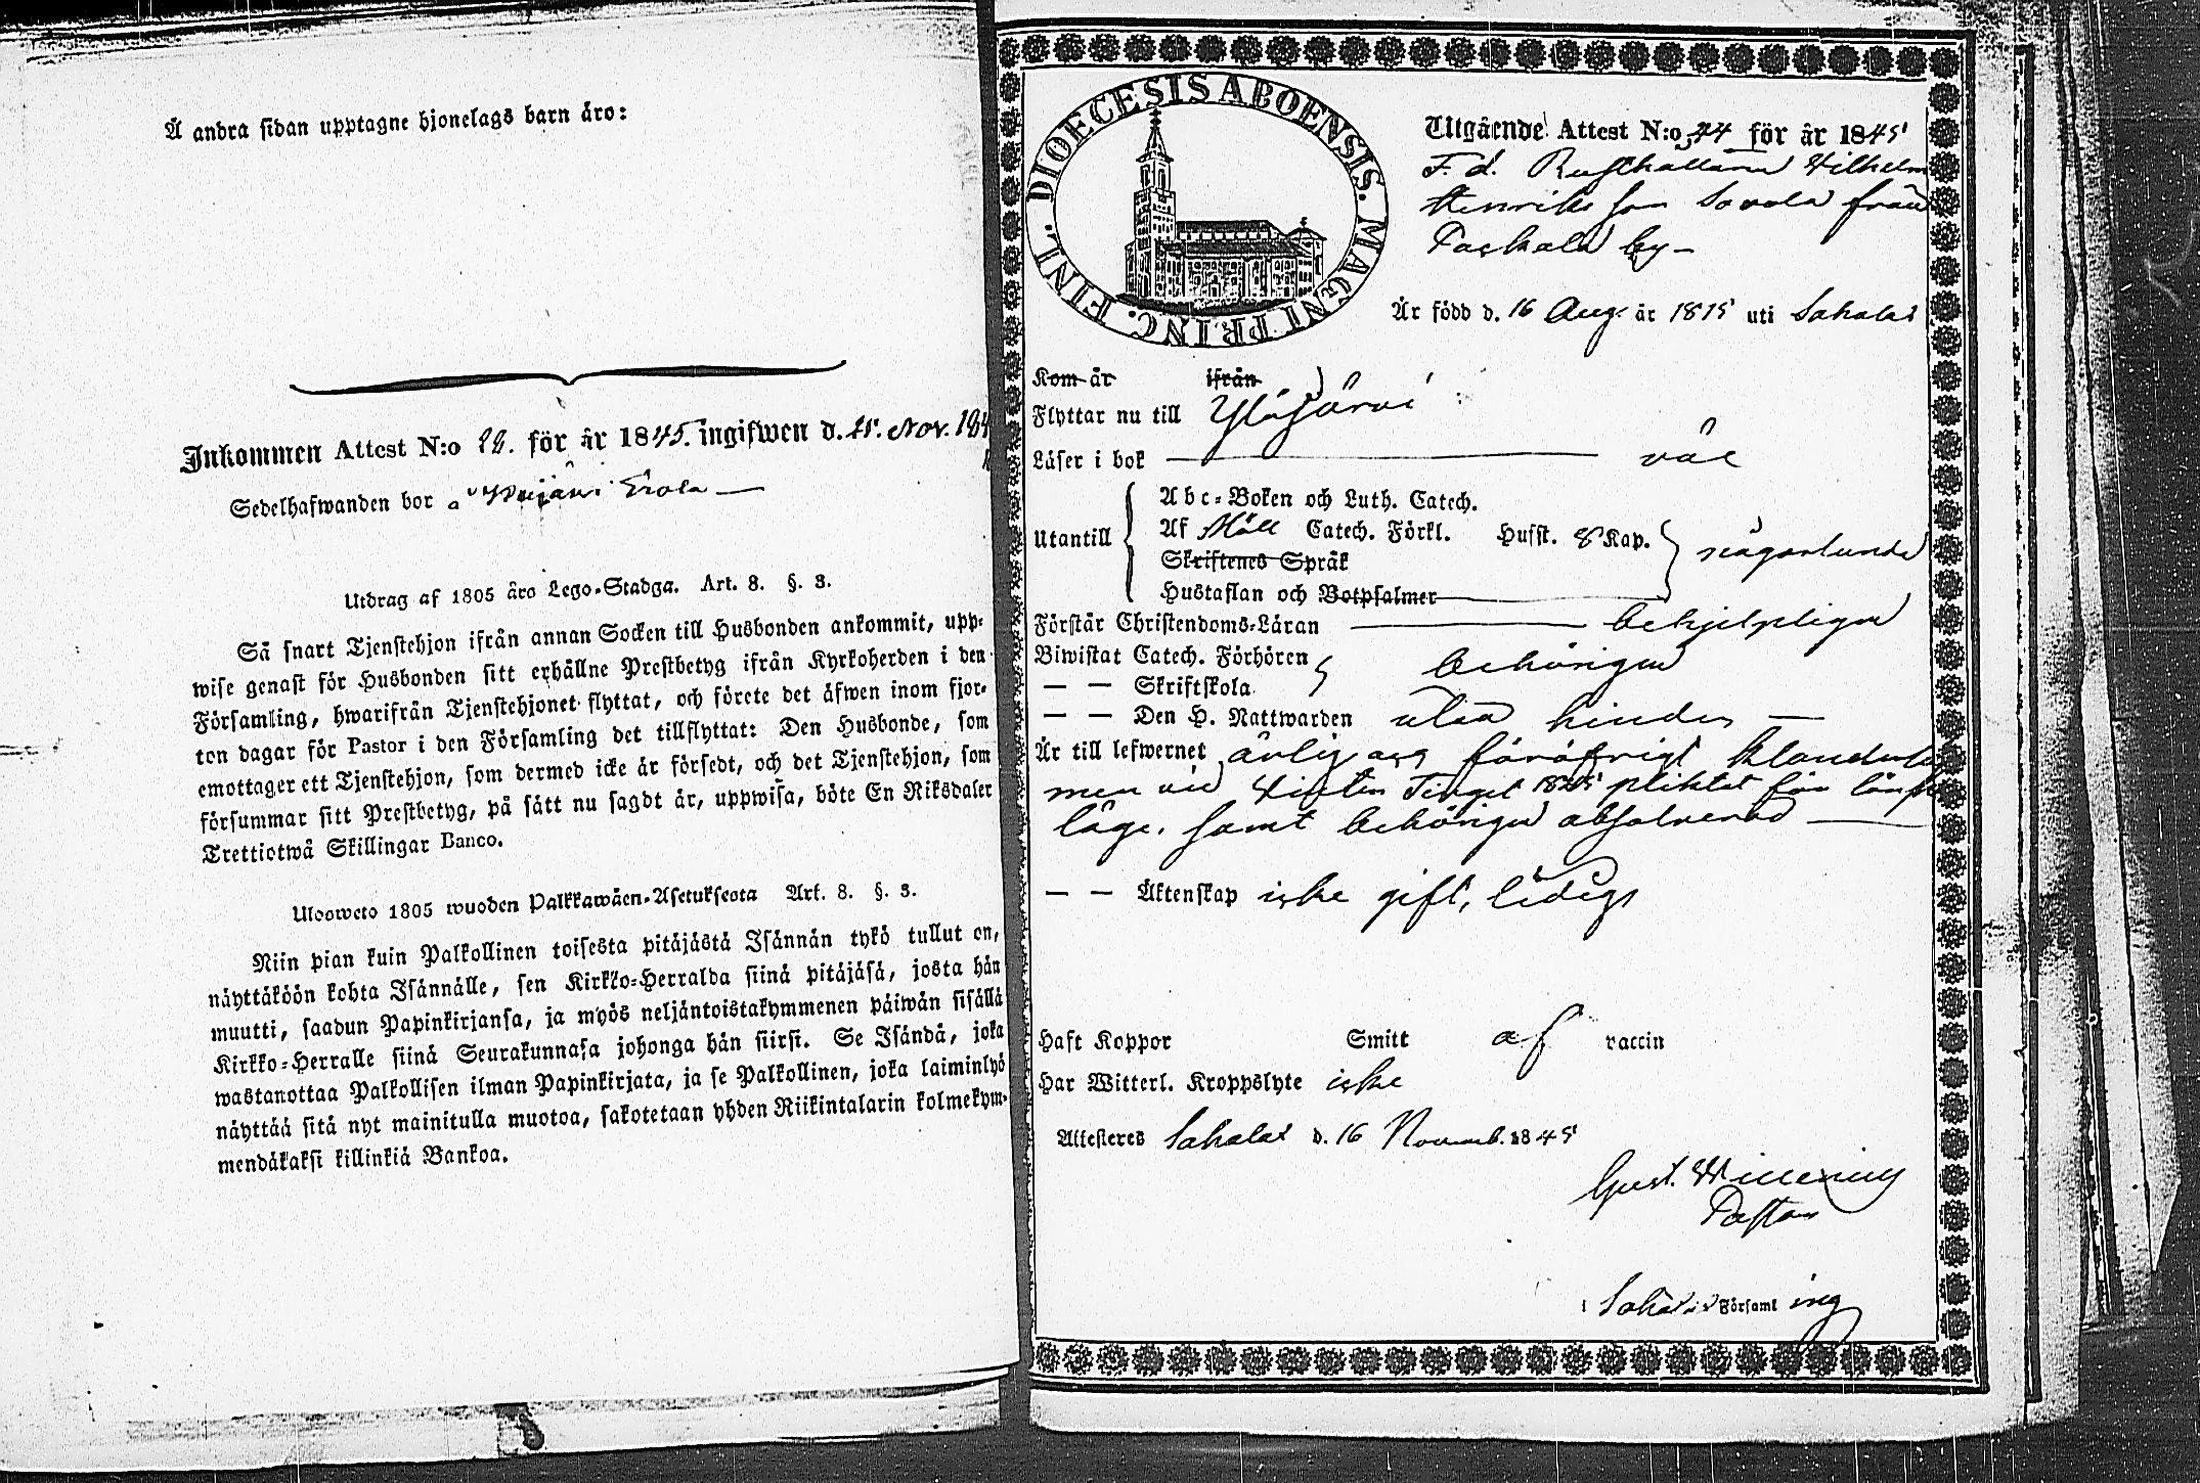 Å andra sidan upptagne hjonelags barn äro:
Inkommen Attest N:o 22. för år 1845. ingifwen d. 21. Nov. 184
Sedelhafwanden bor
Utdrag af 1805 års Lego-Stadga. Art. 8. §. 3.
Så snart Tjenstehjon ifrån annan Socken till Husbonden ankommit, upp-
wise genast för Husbonden sitt erhållne Prestbetyg ifrån Kyrkoherden i den
Församling, hwarifrån Tjenstehjonet flyttat, och förete det äfwen inom fjor-
ton dagar för Pastor i den Församling det tillflyttat: Den Husbonde, som
emottager ett Tjenstehjon, som dermed icke är försedt, och det Tjenstehjon, som
försummar sitt Prestbetyg, på sätt nu sagdt är, uppwisa, böte En Riksdaler
Trettiotwå Skillingar Banco.
Ulosweto 1805 wuoden Palkkawäen-Asetuksesta Art. 8. §. 3.
Niin pian kuin Palkollinen toisesta pitäjästä Isännän tykö tullut on,
näyttäköön kohta Isännälle, sen Kirkko-Herralda siinä pitäjäsä, josta hän
muutti, saadun Papinkirjansa, ja myös neljäntoistakymmenen päiwän sisällä
Kirkko-Herralle siinä Seurakunnasa johonga hän siirsi. Se Isändä, joka
wastanottaa Palkollisen ilman Papinkirjata, ja se Palkollinen, joka laiminlyö
näyttää sitä nyt mainitulla muotoa, sakotetaan yhden Riikintalarin kolmekym-
mendäkaksi killinkiä Bankoa.
DIOECESIS ABOENSIS. MAGNI PRINC. FINL.
Utgående Attest N:o 44 för år 1845
F. d. Rusthållaren Wilhelm
Henriksson Sorola från
by
Är född d. 16 Aug. år 1815 uti Sahalax
Kom år ifrån
Flyttar nu till Ylöjärvi
Läser i bok väl
Abc-Boken och Luth. Catech.
Utantill Af Möll Catech. Förkl. Husst. 8 Kap. någorlunda
Skriftenes Språk
Hustaflan och Botpsalmer
Förstår Christendoms-Läran behjelpligen
Biwistat Catech. Förhören behörigen
— — Skriftskola
— — Den H. Nattwarden utan hinder —
Är till lefwernet ärlig och föröfrigt klanderfri
men vid Winter Tinget 1845 pliktat för lönska
läge, samt behörigen absolverad
— — Äktenskap icke gift, ledig
Haft Koppor Smitt af vaccin
Har Witterl. Kroppslyte icke
Attesteres Sahalax d. 16 Novemb. 1845
Gust. Willenius
Pastor
i Sahalax Församling